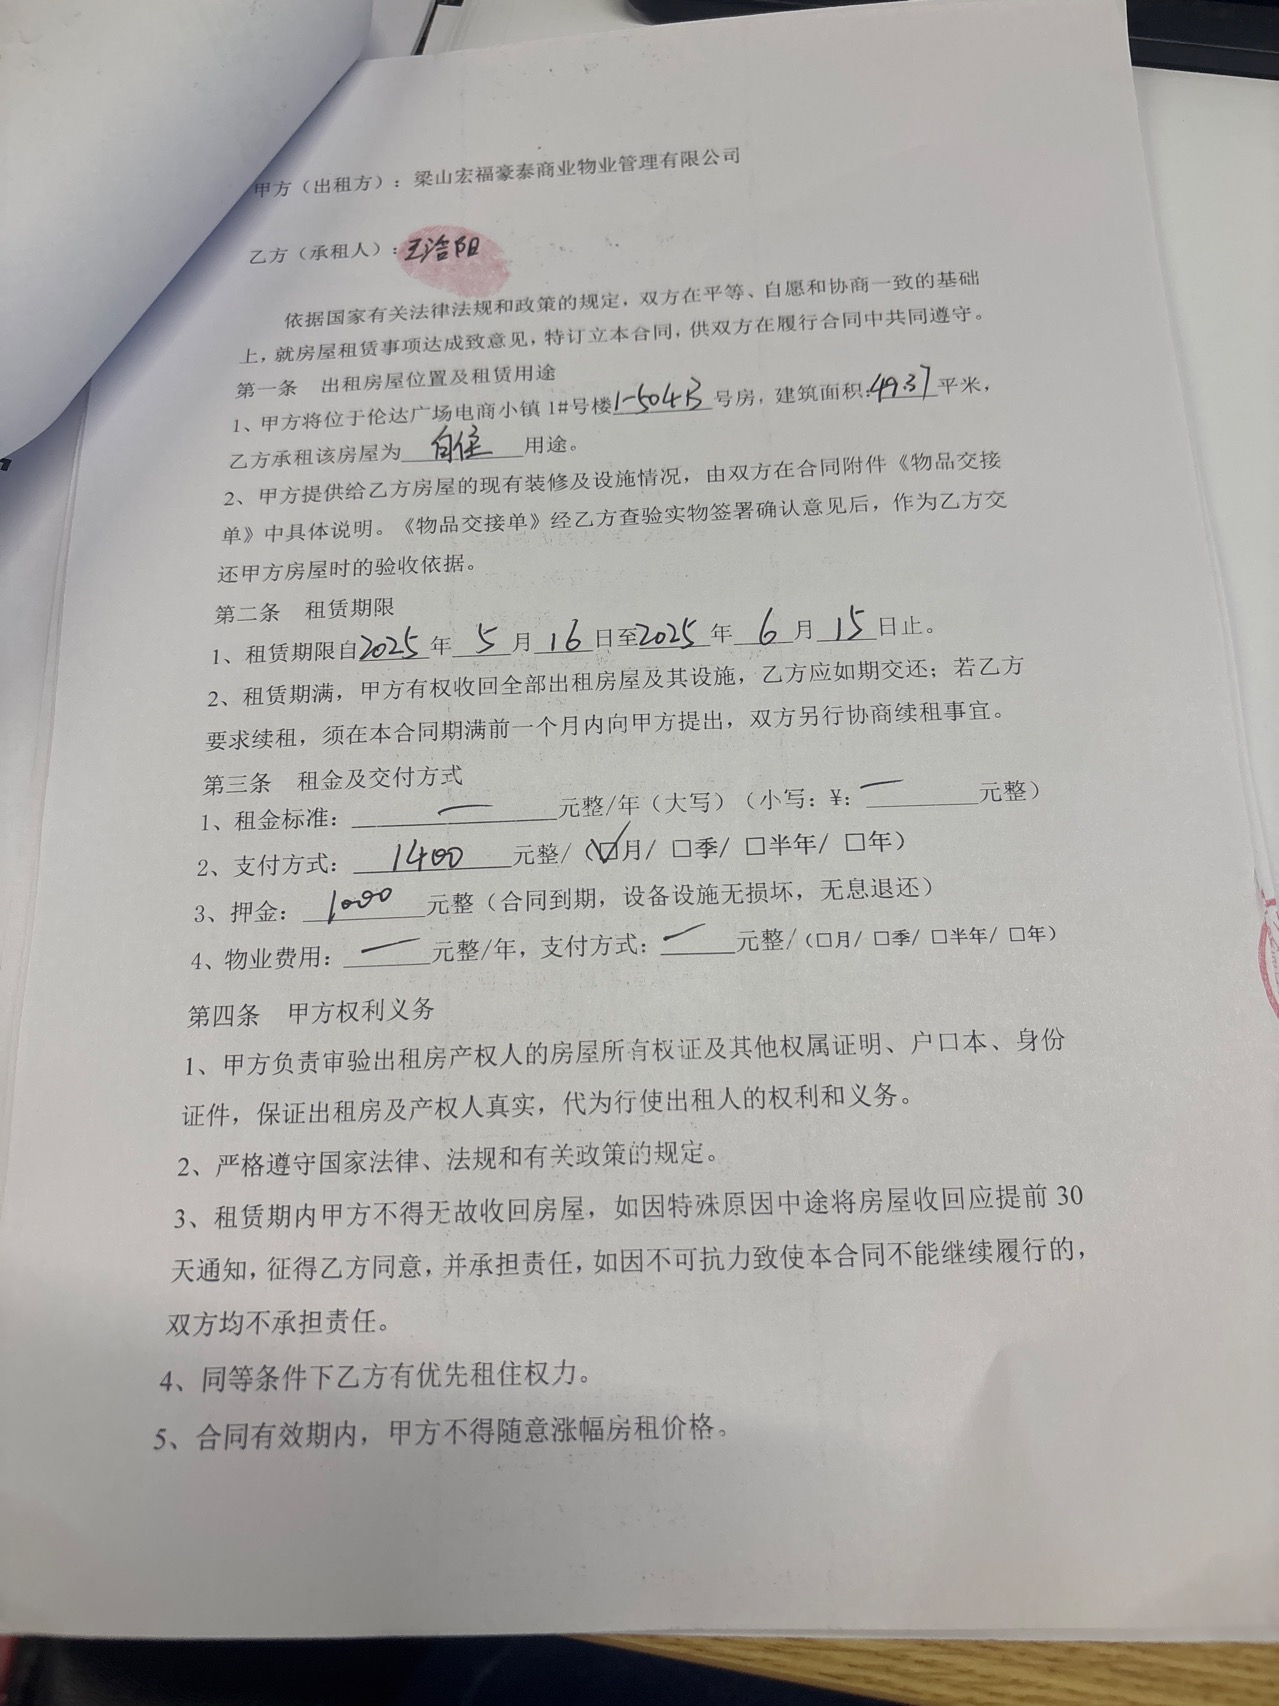 甲方（出租方）：梁山宏福豪泰商业物业管理有限公司
乙方（承租人）：王浛阳
依据国家有关法律法规和政策的规定，双方在平等、自愿和协商一致的基础
上，就房屋租赁事项达成致意见，特订立本合同，供双方在履行合同中共同遵守。
第一条　出租房屋位置及租赁用途
1、甲方将位于伦达广场电商小镇 1#号楼1-504B号房，建筑面积:49.37平米，
乙方承租该房屋为 自住 用途。
2、甲方提供给乙方房屋的现有装修及设施情况，由双方在合同附件《物品交接
单》中具体说明。《物品交接单》经乙方查验实物签署确认意见后，作为乙方交
还甲方房屋时的验收依据。
第二条　租赁期限
1、租赁期限自2025年 5 月 16 日至2025年 6 月 15 日止。
2、租赁期满，甲方有权收回全部出租房屋及其设施，乙方应如期交还；若乙方
要求续租，须在本合同期满前一个月内向甲方提出，双方另行协商续租事宜。
第三条　租金及交付方式
1、租金标准：一元整/年（大写）（小写：¥：一元整）
2、支付方式：1400元整/（☑月/ □季/ □半年/ □年）
3、押金：1000元整（合同到期，设备设施无损坏，无息退还）
4、物业费用：一元整/年，支付方式：一元整/（□月/ □季/ □半年/ □年）
第四条　甲方权利义务
1、甲方负责审验出租房产权人的房屋所有权证及其他权属证明、户口本、身份
证件，保证出租房及产权人真实，代为行使出租人的权利和义务。
2、严格遵守国家法律、法规和有关政策的规定。
3、租赁期内甲方不得无故收回房屋，如因特殊原因中途将房屋收回应提前 30
天通知，征得乙方同意，并承担责任，如因不可抗力致使本合同不能继续履行的，
双方均不承担责任。
4、同等条件下乙方有优先租住权力。
5、合同有效期内，甲方不得随意涨幅房租价格。